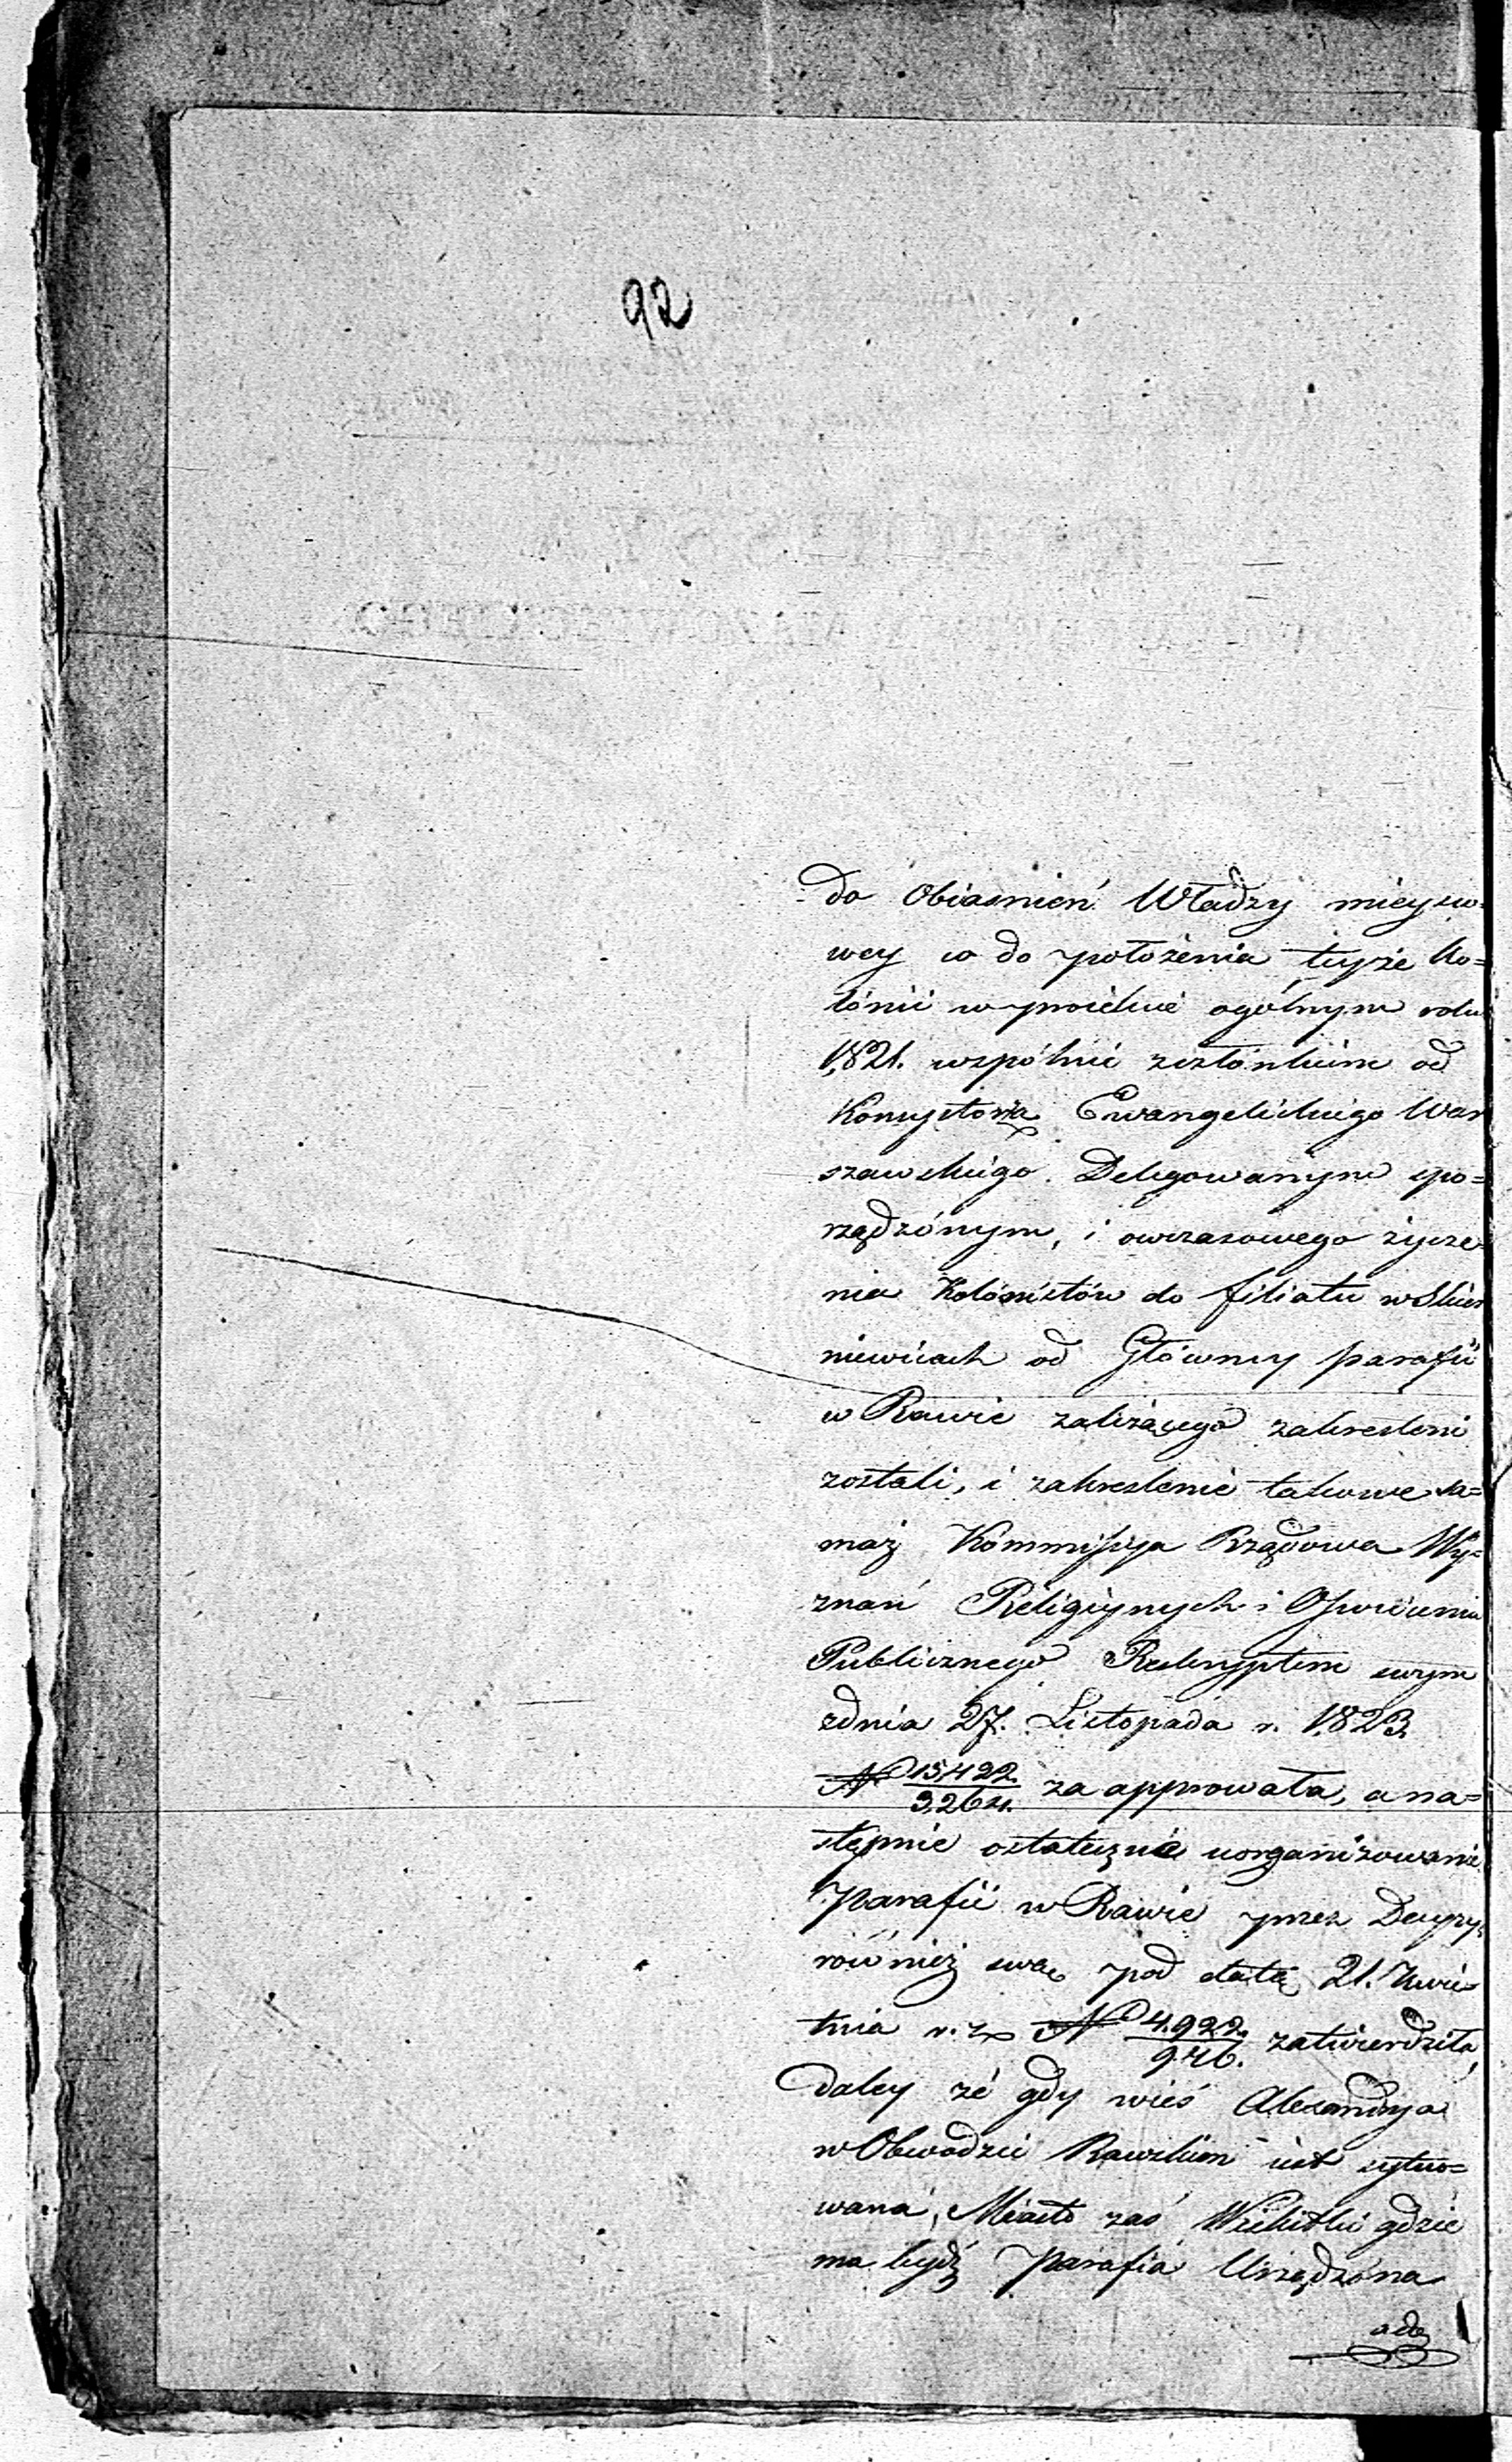 92
do Obiasnień Władzy mieysco-
wey co do położenia teyże Ko=
lónii w proiekcie ogólnym roku
1,821. wspólnie z członkiem od
Konsystorza Ewangelickiego War
szawskiego Delegowanym spo=
rządzónym, i owczasowego życze-
nia Kolónistów do filiału w Skier
niewicach od Główney parafii
w Rawie zależącego zakresleni
zostali, i zakreslenie takowe ta=
maż Kommissya Rządowa Wy=
znań Religiynych i Oswiecenia
Publicznego Reskryptem swym
z dnia 27. Listopada r. 1,823.
N 15422/3,264. zaapprowała, a na=
stępnie ostateczne uorganizowanie
Parafii w Rawie przez Decyzyą
również swą pod datą 21. Kwie
tnia r. z N 4,922./946. zatwierdziła,
Daley zé gdy wieś Alexandrya
w Obwodzie Rawskim iest sytuo=
wana, Miasto zaś Wiskitki gdzie
ma bydź Parafia Urządzóna